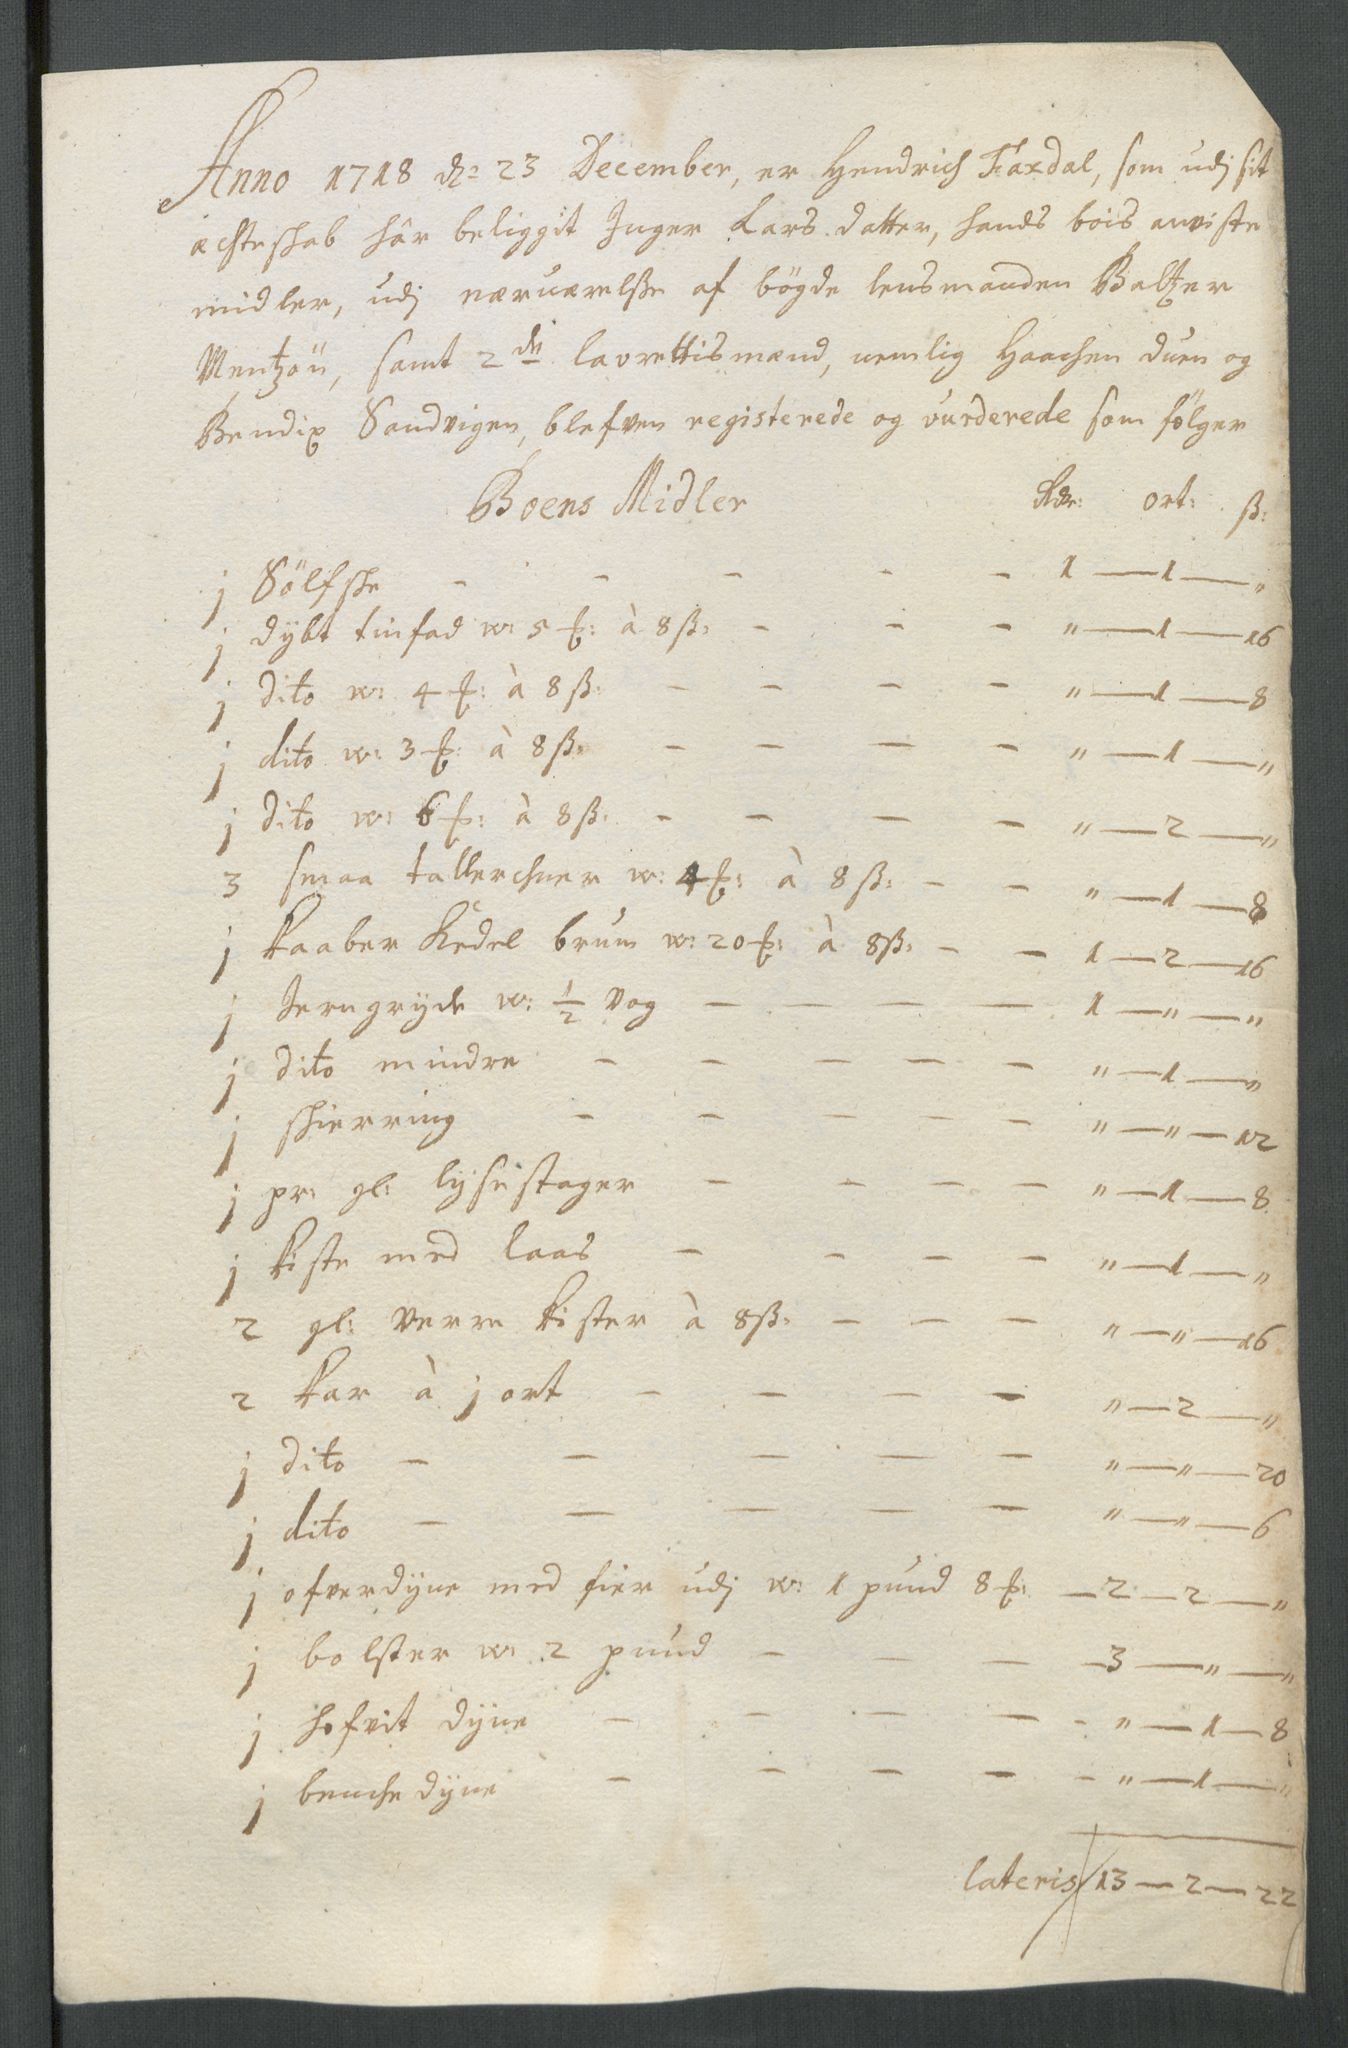 Anno 1718 dn: 23 December, er Hendrich Faxdal, som udj sit
ægteskab hår beligget Inger Lars datter, hands bois anviste
midler, udj nærværelsse af bögde lensmanden Baltzer
Mentzon, samt 2de lavrettismænd, nemlig Haachen Duen og
Bendix Sandvigen, blefven registerede og vurderede som fölger
Boens Midler Rdr: ort: ß:
j Sölfske - - - - - 1 — 1 — "
j dybt tinfad w: 5 ℔: à 8 ß: - - - " — 1 — 16
j dito w: 4 ℔: à 8 ß: - - - - " — 1 — 8
j dito w: 3 ℔: à 8 ß: - - - - " — 1 — "
j dito w: 6 ℔: à 8 ß: - - - - " — 2 — "
3 smaa tallerchner w: 4 ℔: à 8 ß: - - " — 1 — 8
j kaaber kedel brum w: 20 ℔: à 8 ß: - - 1 — 2 — 16
j Jerngryde w: 1/2 vog - - - - 1 — " — "
j dito mindre - - - - - " — 1 — "
j skierring - - - - - " — " — 12
j pr: gl: lysestager - - - - " — 1 — 8
j kiste med laas - - - - " — 1 — "
2 gl: verre kister à 8 ß: - - - " — " — 16
2 kar à j ort - - - - " — 2 — "
j dito - - - - - " — " — 20
j dito - - - - - " — " — 6
j ofverdyne med fier udj w: 1 pund 8 ℔: — 2 — 2 — "
j bolster w: 2 pund - - - - 3 — " — "
j hofvit dyne - - - - - " — 1 — 8
j benche dyne - - - - - " — 1 — "
lateris 13 — 2 — 22